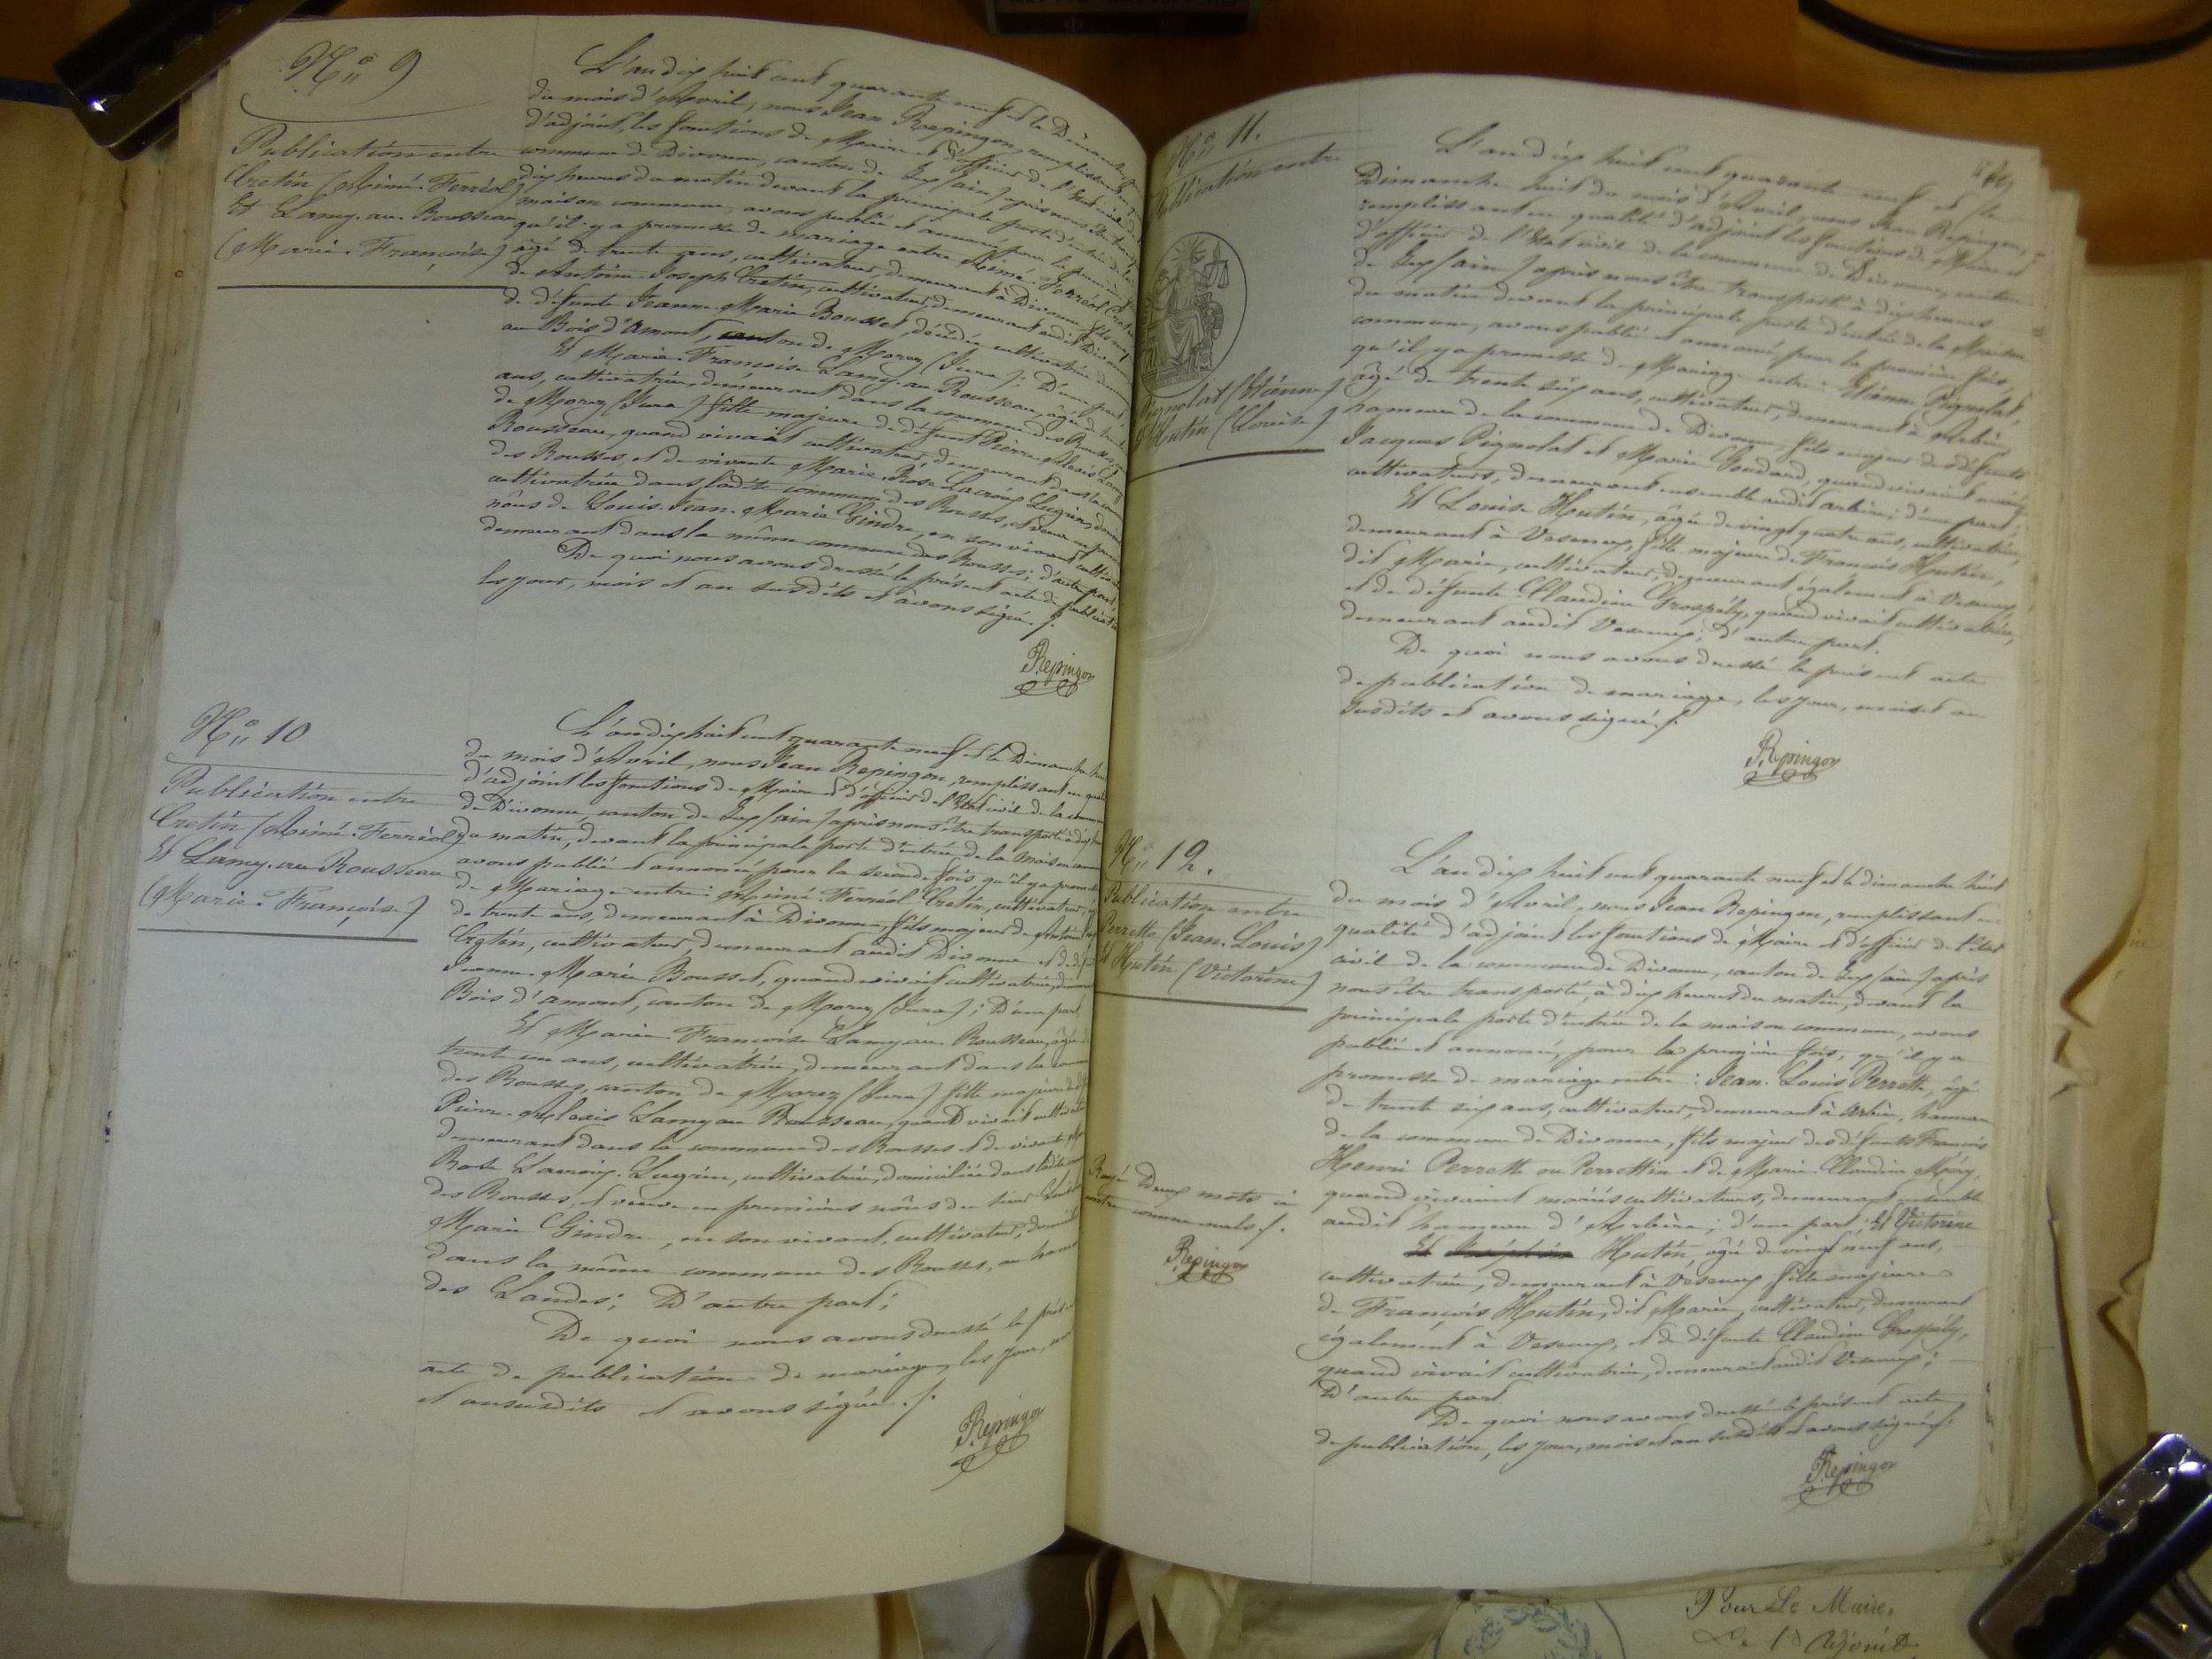 N° 9
Publication entre
Cretin (Aimé-Ferréol)
Et Lamy-au-Rousseau
(Marie-Françoise)
L'an dix huit cent quarante neuf et le Dimanche
du mois d'Avril, nous Jean Repingon, remplissant
d'adjoint, les fonctions de Maire et d'officier de l'Etat civil
commune de Divonne, canton de Gex (ain) après nous être
dix heures du matin devant la principale porte d'entrée de la
maison commune, avons publié et annoncé pour la première
qu'il y a promesse de mariage entre Aimé-Ferréol Cretin
âgé de trente ans, cultivateur, demeurant à Divonne, fils
de Antoine-Joseph Cretin, cultivateur, demeurant audit Divonne
de défunte Jeanne-Marie Bousset, décédée cultivatrice
au Bois d'Amont, canton de Morez (Jura); D'une part
Et Marie-Françoise Lamy-au-Rousseau, âgée de trente
ans, cultivatrice, demeurant dans la commune des Rousses,
de Morez (Jura) fille majeure de défunt Pierre-Alexis Lamy
Rousseau, quand vivait cultivateur, demeurant dans la commune
des Rousses, et de vivante Marie-Rose Lacroix-Lugrin,
cultivatrice dans ladite commune des Rousses, et veuve en
nôces de Louis-Jean-Marie Gindre, en son vivant
demeurant dans la même commune des Rousses; d'autre part,
De quoi nous avons dressé le présent acte de publication
les jour, mois et an susdits et avons signé ./.
Repingon
N° 10
Publication entre
Cretin (Aimé-Ferréol)
Et Lamy-au-Rousseau
(Marie-Françoise)
L'an dix huit cent quarante neuf et le Dimanche huit
du mois d'Avril, nous Jean Repingon, remplissant en
d'adjoint les fonctions de Maire et d'officier de l'Etat civil de la commune
de Divonne, canton de Gex (ain) après nous être transporté à dix
du matin, devant la principale porte d'entrée de la Maison
avons publié et annoncé pour la seconde fois, qu'il y a promesse
de Mariage entre: Aimé-Ferréol Cretin, cultivateur,
de trente ans, demeurant à Divonne, fils majeur de
Cretin, cultivateur, demeurant audit Divonne et de
Jeanne-Marie Bousset, quand vivait cultivatrice,
Bois d'amont, canton de Morez (Jura); D'une part,
Et Marie-Françoise Lamy-au-Rousseau, âgée de
trente un ans, cultivatrice, demeurant dans la commune
des Rousses, canton de Morez (Jura) fille majeure de
Pierre-Alexis Lamy-au-Rousseau, quand vivait cultivateur
demeurant dans la commune des Rousses et de vivante
Rose Lacroix-Lugrin, cultivatrice, domiciliée dans ladite
des Rousses, et veuve en premières nôces de
Marie Gindre, en son vivant, cultivateur,
dans la même commune des Rousses, au hameau
des Landes; D'autre part;
De quoi nous avons dressé le présent
acte de publication de mariage, les jour, mois
et an susdits et avons signé ./.
Repingon
N° 11.
Publication entre
Pignolat (Etienne)
Et Hutin (Louise)
L'an dix huit cent quarante neuf et le
Dimanche huit du mois d'Avril, nous Jean Repingon,
remplissant en qualité d'adjoint les fonctions de Maire et
d'officier de l'Etat civil de la commune de Divonne, canton
de Gex (ain) après nous être transporté à dix heures
du matin devant la principale porte d'entrée de la Maison
commune, avons publié et annoncé, pour la première fois,
qu'il y a promesse de Mariage entre: Etienne Pignolat,
âgé de trente six ans, cultivateur, demeurant à Arbère,
hameau de la commune de Divonne, fils majeur des défunts
Jacques Pignolat et Marie Goudard, quand vivaient mariés
cultivateurs, demeurant ensemble audit arbère; d'une part;
Et Louise Hutin, âgée de vingt quatre ans, cultivatrice,
demeurant à Vesenex, fille majeure de François Hutin,
dit Marie, cultivateur, demeurant également à Vesenex
et de défunte Claudine Grospély, quand vivait cultivatrice,
demeurant audit Vesenex; d'autre part.
De quoi nous avons dressé le présent acte
de publication de mariage, les jour, mois et an
susdits et avons signé ./.
Repingon
N° 12.
Publication entre
Perrette (Jean-Louis)
Et Hutin (Victorine)
L'an dix huit cent quarante neuf et le dimanche huit
du mois d'Avril, nous Jean Repingon, remplissant en
qualité d'adjoint les fonctions de Maire et d'officier de l'Etat
civil de la commune de Divonne, canton de Gex (ain) après
nous être transporté, à dix heures du matin, devant la
principale porte d'entrée de la maison commune, avons
publié et annoncé, pour la première fois, qu'il y a
promesse de mariage entre: Jean-Louis Perrette, âgé
de trente six ans, cultivateur, demeurant à Arbère, hameau
de la commune de Divonne, fils majeur des défunts François
Henri Perrette ou Perrettin et de Marie-Claudine Méry,
quand vivaient mariés cultivateurs, demeurant ensemble
audit hameau d'Arbère; d'une part; Et Victorine
Et Hutin, âgée de vingt neuf ans,
cultivatrice, demeurant à Vésenex, fille majeure
de François Hutin, dit Marie, cultivateur, demeurant
également à Vesenex, et de défunte Claudine Grospély,
quand vivait cultivatrice, demeurant audit Vesenex;
D'autre part.
De quoi nous avons dressé le présent acte
de publication, les jour, mois et an susdits et avons signé ./.
Repingon
Rayé Deux mots ci
contre comme nuls ./.
Repingon
Pour Le Maire,
Le 1er Adjoint